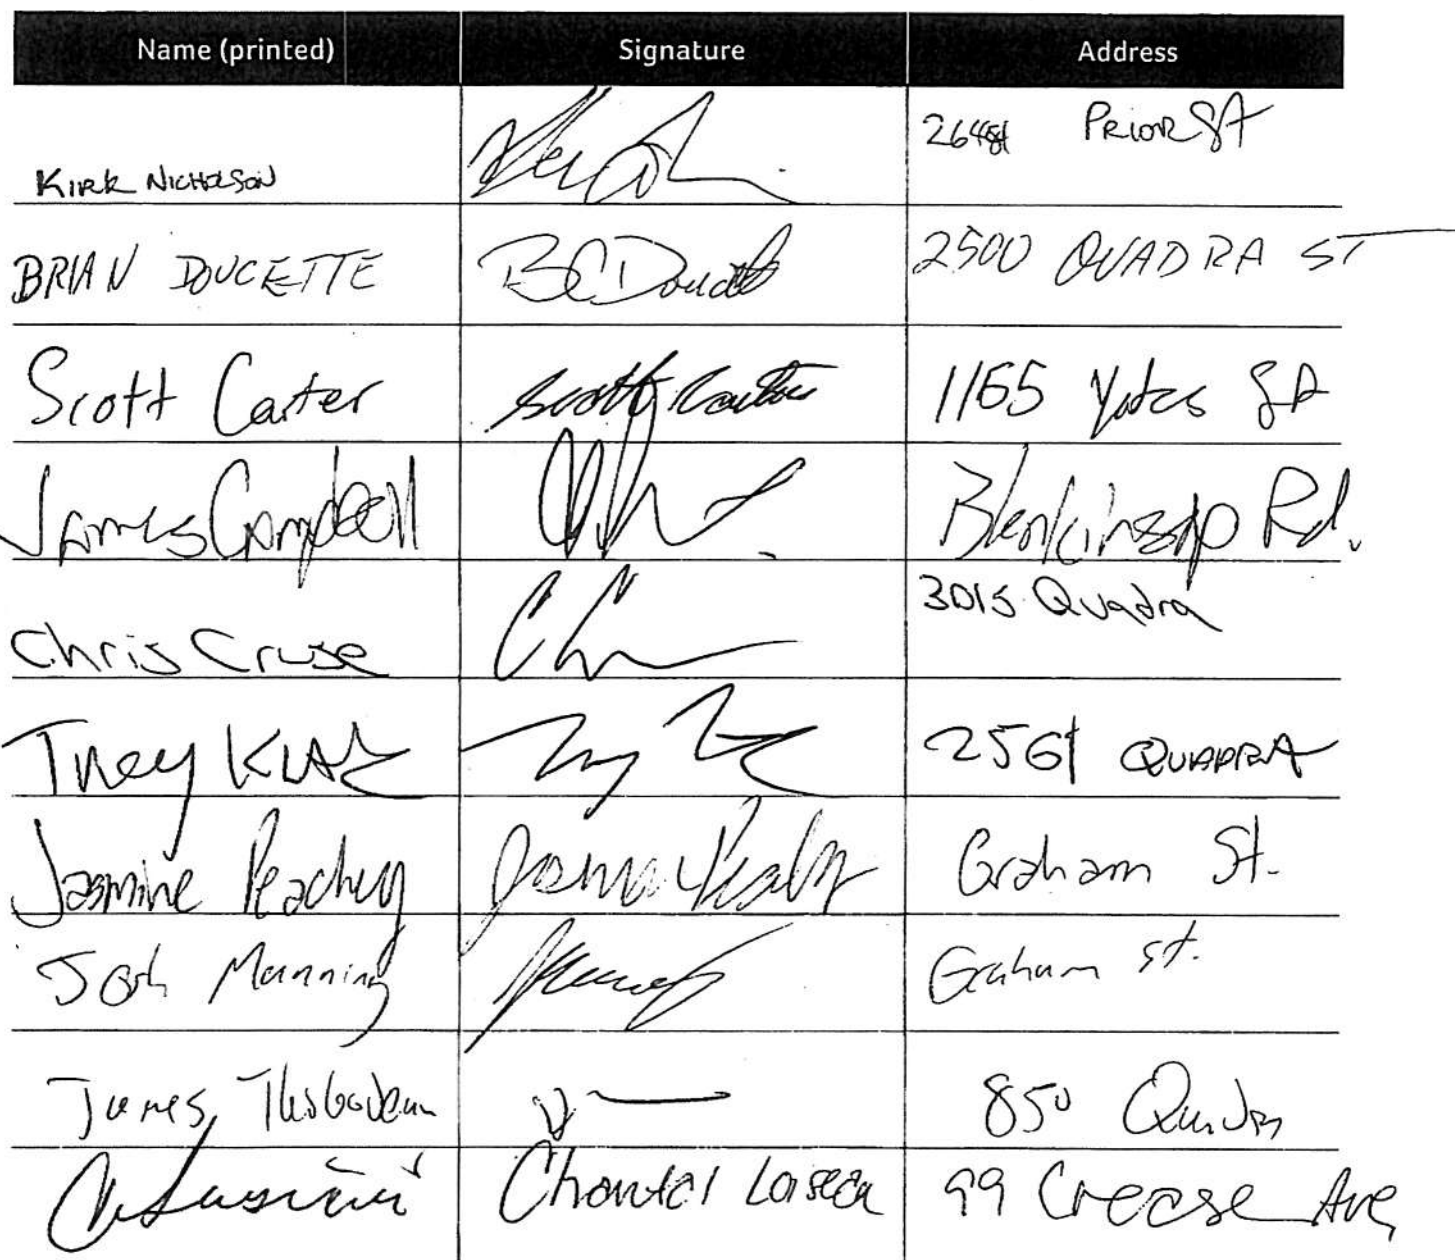 Name (printed) Signature Address
KIRK NICHOLSON PRIOR ST
BRIAN DOUCETTE BC Doucette 2500 QUADRA ST
Scott Carter Scott Carter 1165 Yates St
James Campbell Blenkinsop Rd.
Chris Cruse 3015 Quadra
Trey 2561 QUADRA
Jasmine Peachey Graham St.
Josh Manning Graham St.
James Thibodeau 850 Quadra
Chantel 99 Crease Ave